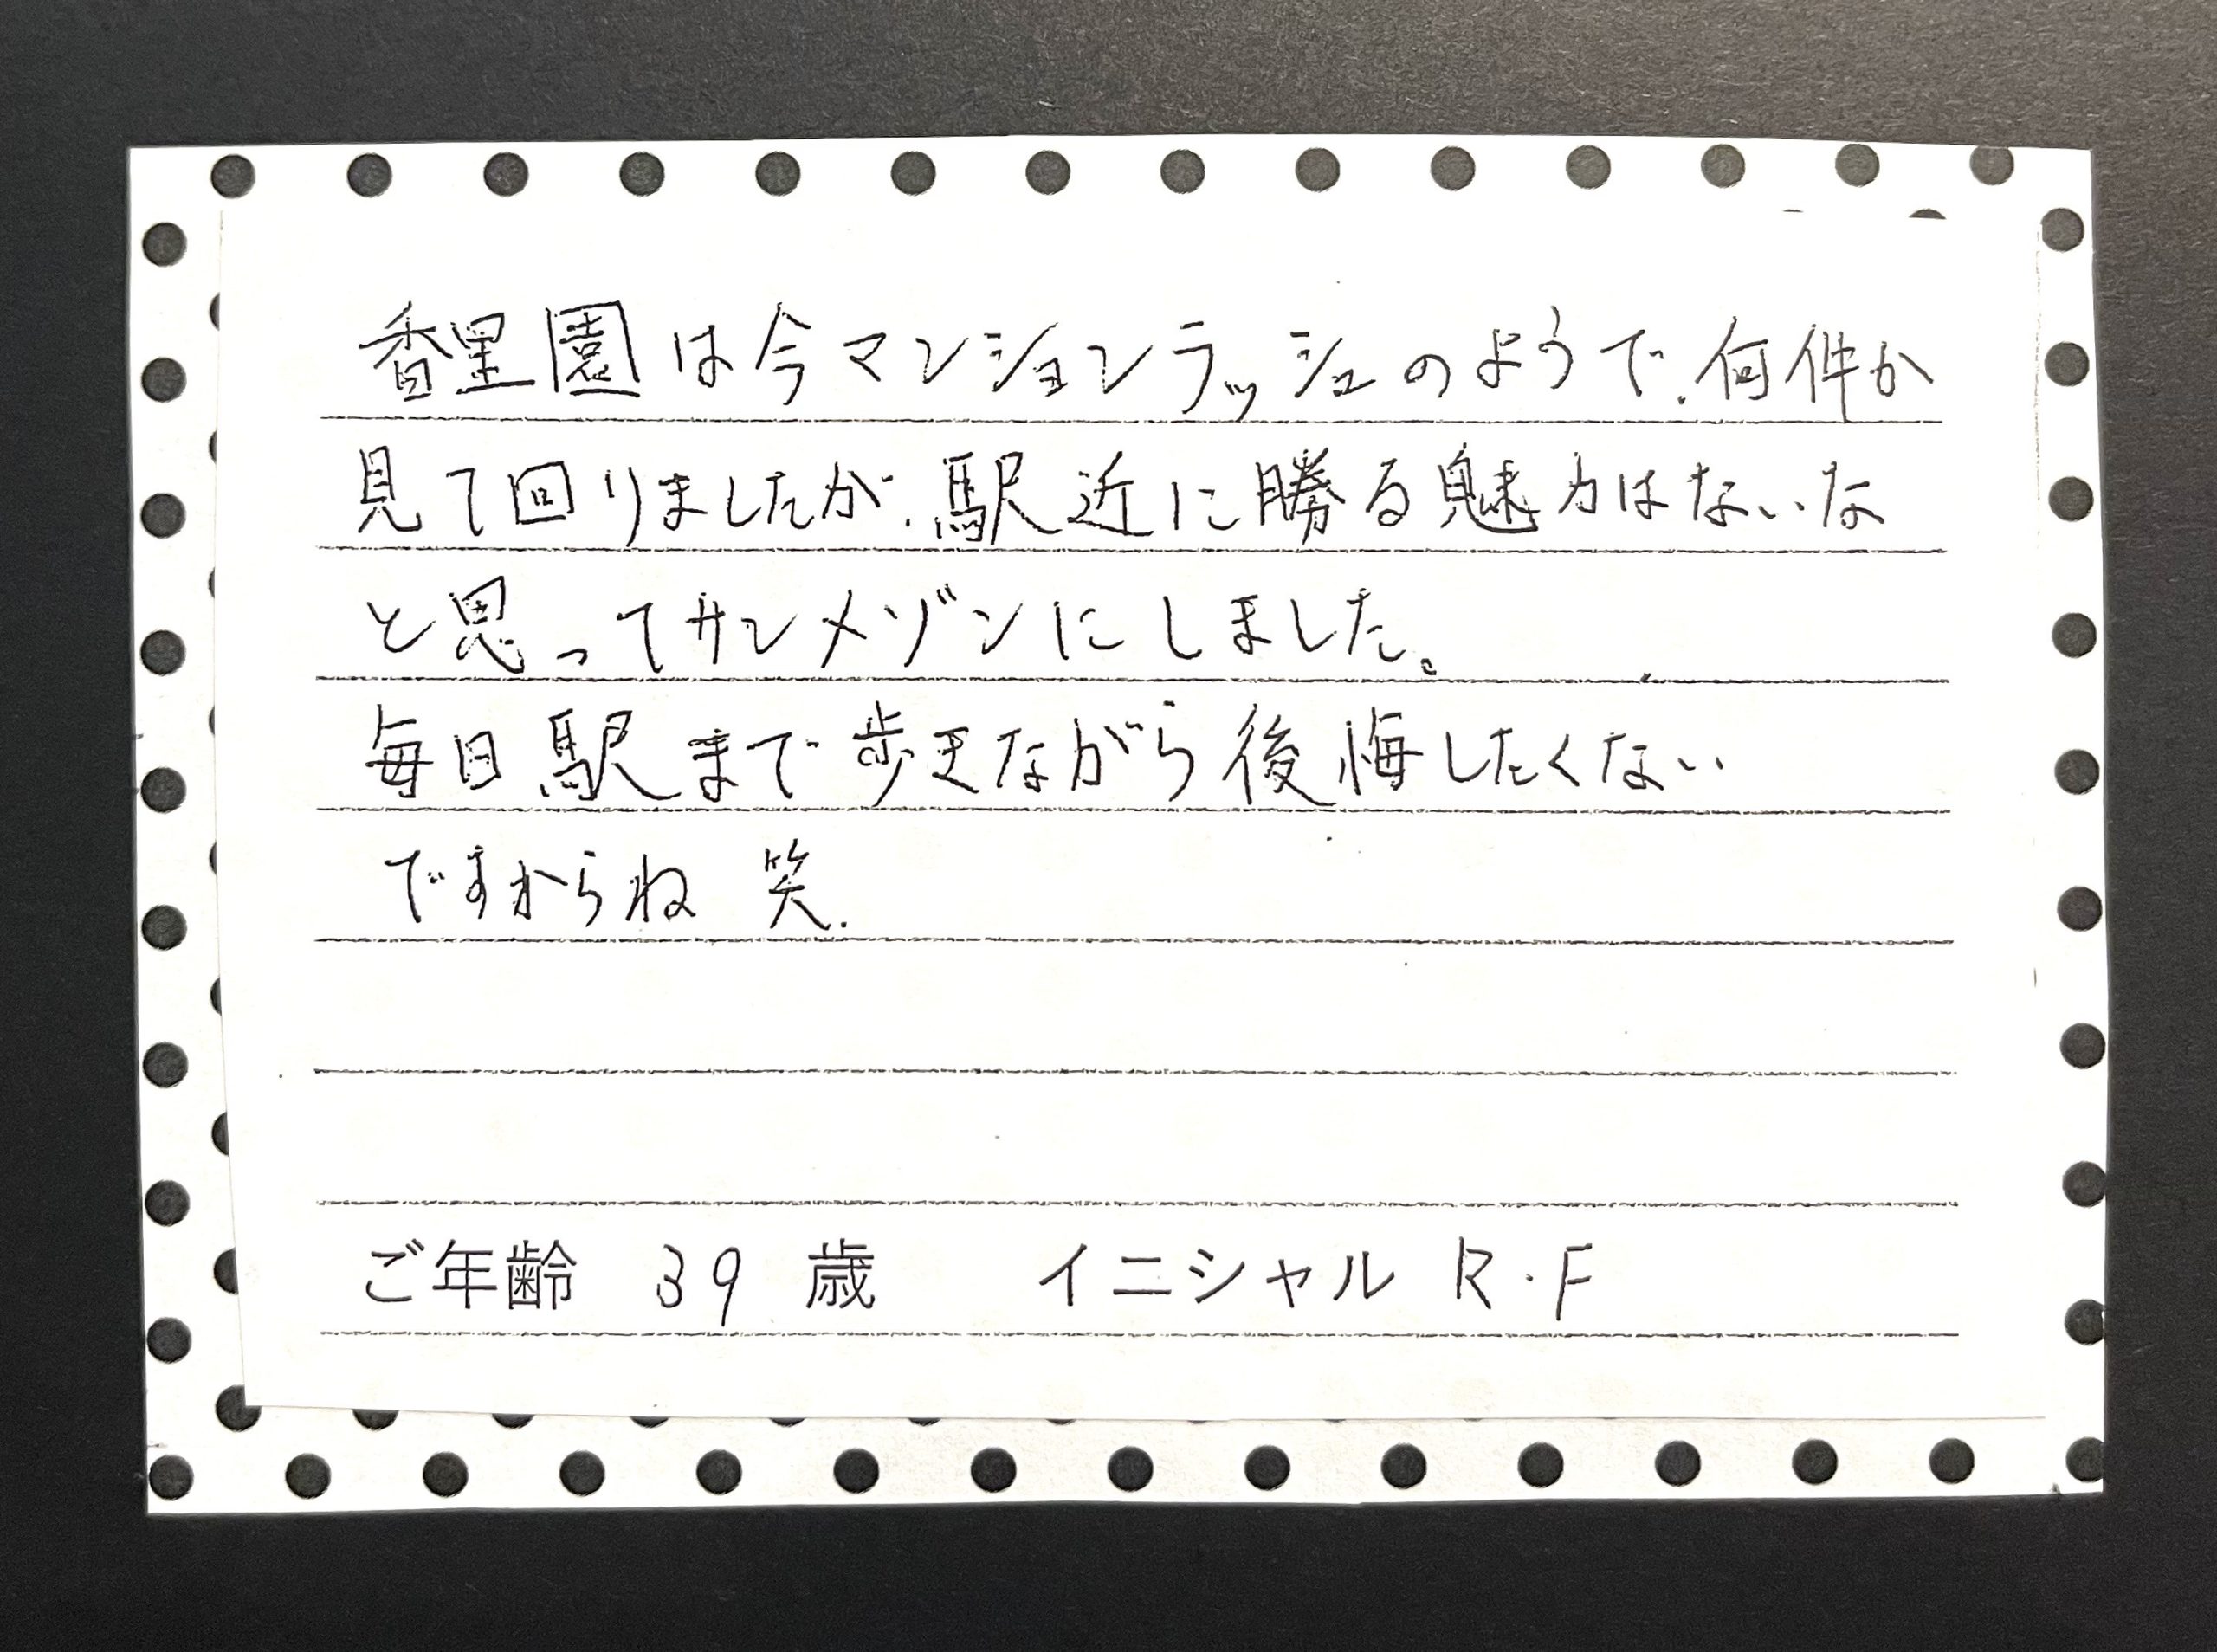 香里園は今マンションラッシュのようで、何件か
見て回りましたが、駅近に勝る魅力はないな
と思ってサンメゾンにしました。
毎日駅まで歩きながら後悔したくない
ですからね 笑.
ご年齢 39 歳 イニシャル R・F